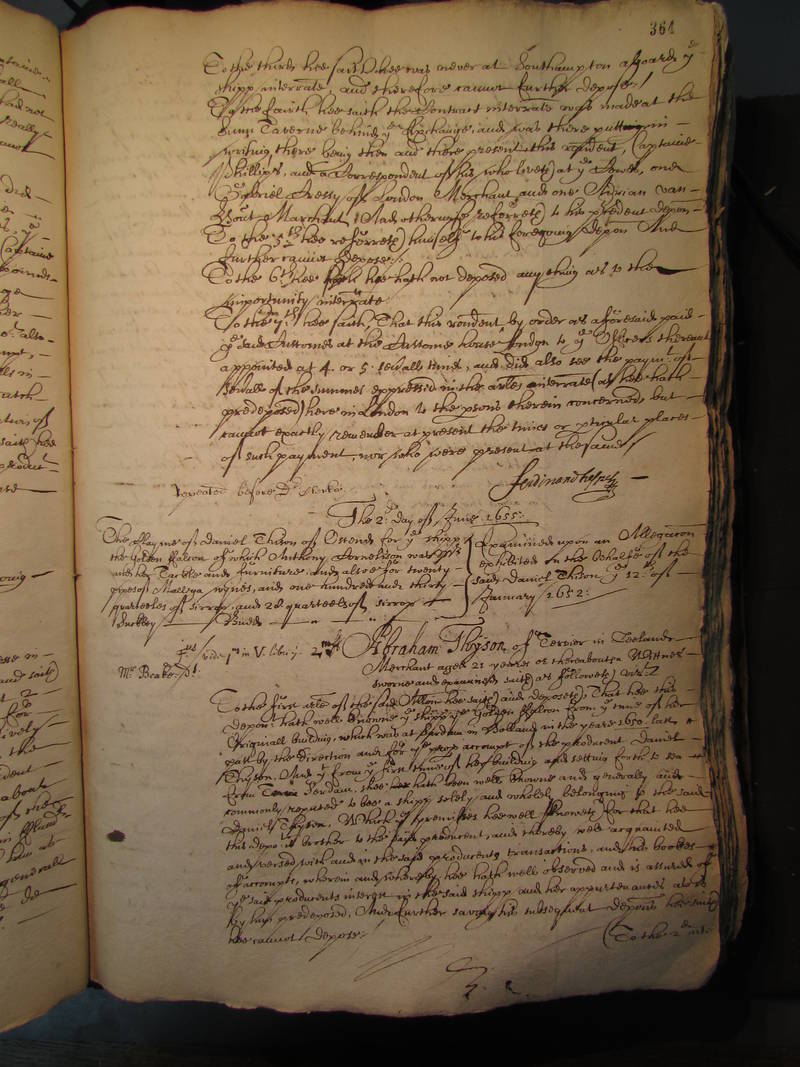 364
To the third hee saith hee was never at Southampton aboard ye
shipp interrate, and therefore cannot further depose./
To the fourth hee saith the Contract interrate was made at the
Taverne behind ye Exchange, and was there putt in
writing there being then and there present this rendent, Captaine
Phillips, and a Correspondent of his who liveth at ye one
Gabriel of London Merchant and one Adrian van
Merchant And otherwise referreth to his predent depon
To the 5th hee referreth himselfe to his foregoing depon And
further cannot depose./.
To the 6th hee saith hee hath not deposed any thing as to the
importunity interrate
To the 7th hee saith That this rendent, by order as aforesaid paid
ye said Customes at the Custome house London to ye Officers thereunto
appointed at 4 or 5 severall times, and did also see the paymt of
severall of the summes expressed in the arles interrate (as hee hath
predeposed) here in London to the psons therein concerned, but
cannot exactly remember at present the times or pticular places
of such payment, nor who were present at the same/
Repeated before Dr Clerke
The 2d day of June 1655:
The clayme of Daniel Thison of Ostend for ye shipp
the Golden Falcon of which Anthony Cornelison was Mr
and her Tackle and furniture, and alsoe for twenty
pipes of Mallega wynes, and one hundred and thirty
quarteeles of sirrop, and 28 quarteels of sirrop
Examined upon an Allegacon
exhibited on the behalfe of the
said Daniel Thison ye 12th of
January 1652:
vide 1m in V. libri
Abraham Thyson of Tervier in Zeelande
Merchant aged 21 yeares or thereabouts a Wittnes
sworne and examined saith as followeth vizt
To the first arle of the said Allon hee saith and deposeth That hee this
depont hath well knowne ye shipp ye Golden Falcon from ye time of her
Originall building, which was at Sardam in Holland in the yeare 1650 last
past by the direction and for ye prop accompt of the producent Daniel
Thyson. And yt from ye first time of her building and setting forth to sea
from Serdam, shee hath been well knowne and generally and
commonly reputed to bee a shipp solely and wholely belonging to the said
Daniel Thyson. Which ye premisses hee well knoweth for that hee
this depont is brother to the said producent, and thereby well acquainted
and versed with and in the said producents transactions, and his bookes
of accompts, wherein and whereby hee hath well observed and is assured of
ye said producents interest in the said shipp and her appurtenances as is
by him predeposed, And further saving his subsequent depons hee saith
hee cannot depose./
(To the 2d